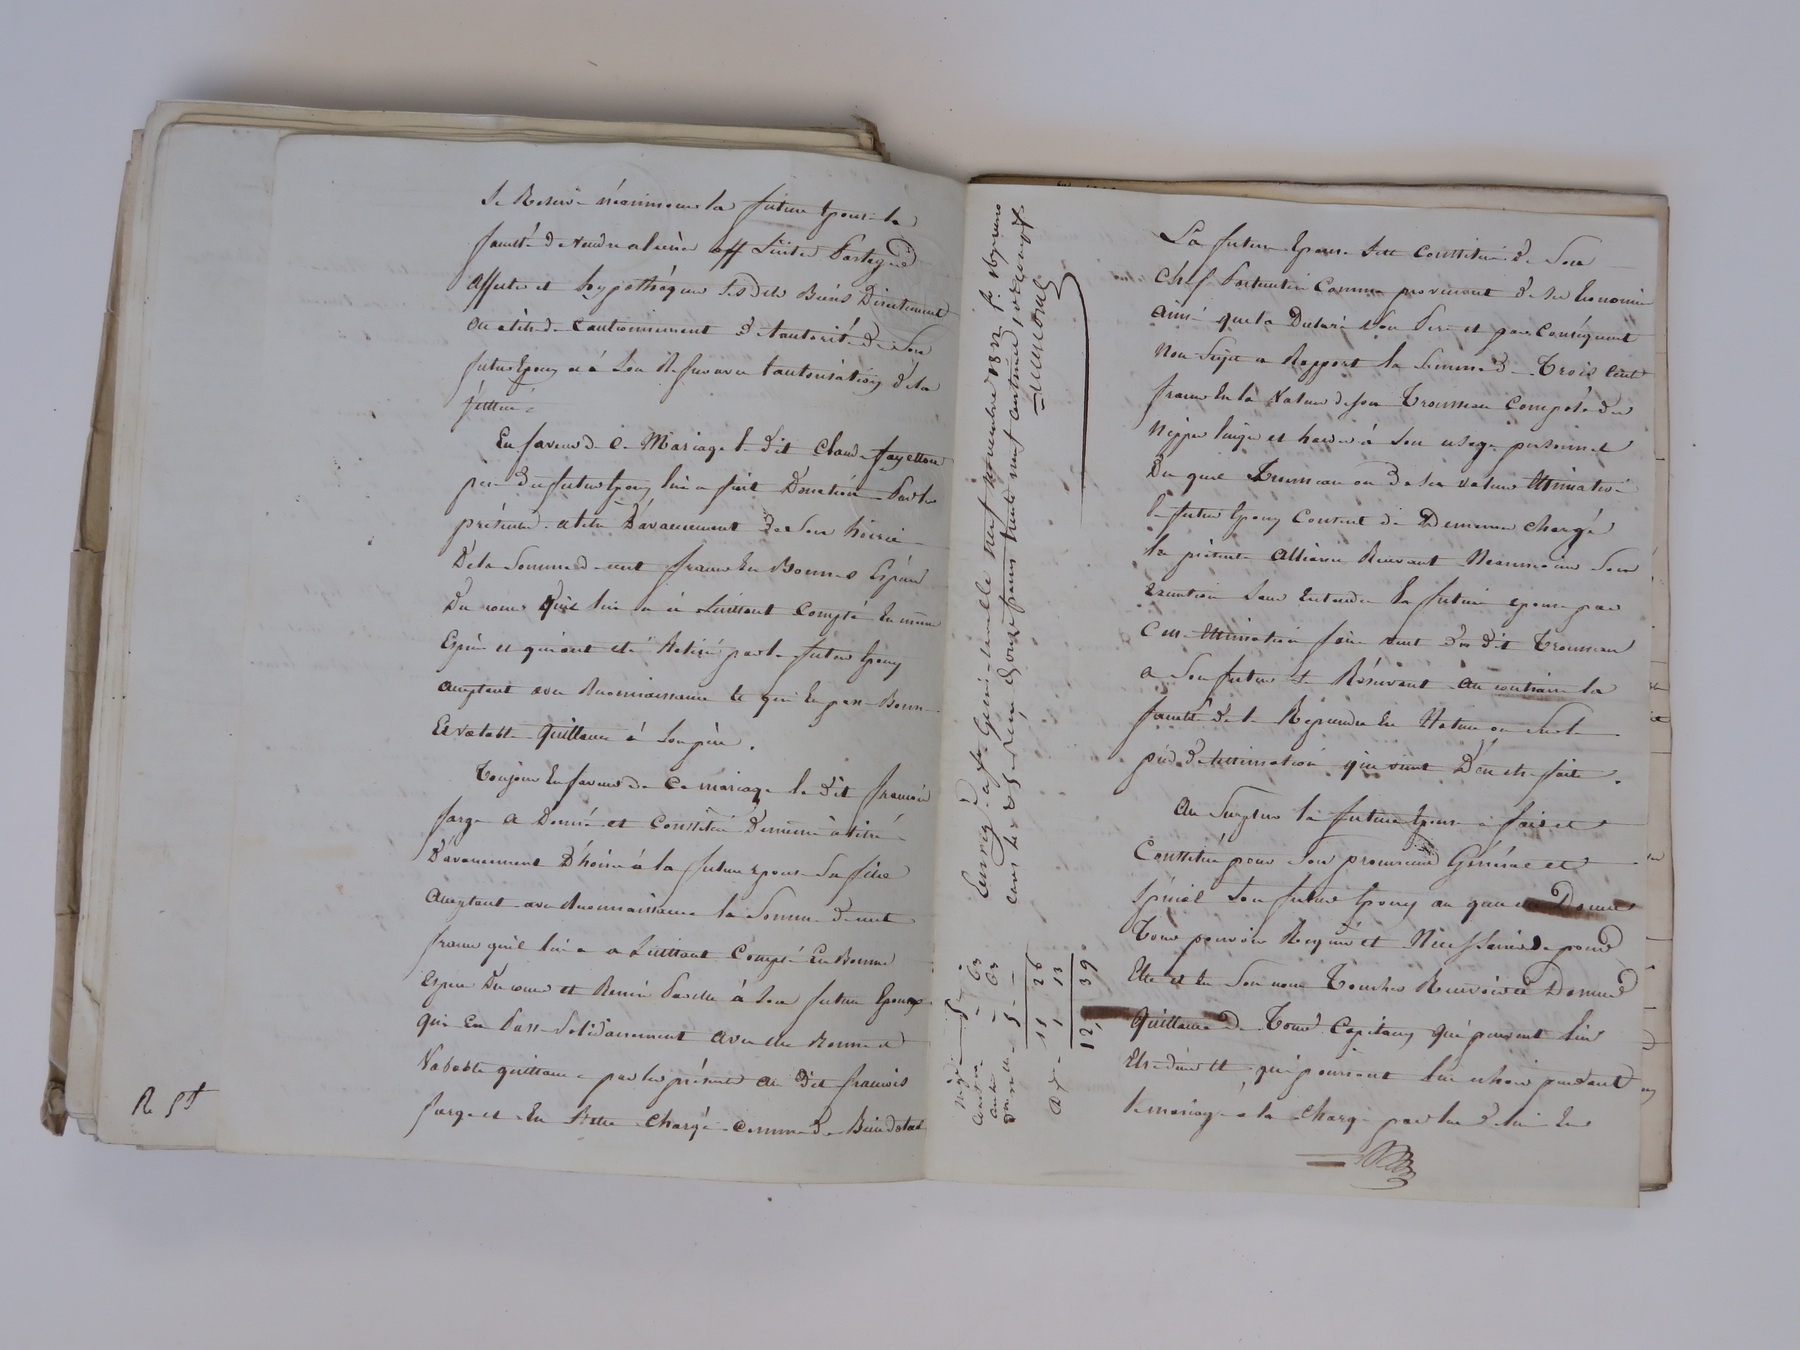 Se Reserve néanmoins la future Epouse la
faculté de vendre aliéner Liciter Partager
affecter et hypothéquer Ses dits Biens Directement
ou à titre de cautionnement de l'autorité de Son
futur Epoux et à Son Refus avec l'autorisation de la
justice
En faveur de Ce Mariage le dit Claude fayetton
pere du futur Epoux lui a fait Donation Par les
présentes a titre D'avancement de Son hoirie
De la Somme de cent francs En Bonnes Espèces
Du cours qu'il lui a à L'instant Compté En mêmes
Espèces et qui ont été Retiré par le futur Epoux
acceptant avec Reconnaissance le qui En passe Bonne
Et valable Quittance à Son père.
Toujours En faveur de Ce mariage le dit françois
farge a Donné et Constitué De même à titre
D'avancement D'hoirie à la future Epouse Sa fille
acceptant avec Reconnaissance la Somme de cent
francs qu'il lui a a L'instant Compté En Bonnes
Espèces Du cours et Remis Par elle à Son futur Epoux
qui En Passe Solidairement avec elle Bonne et
Valable quittance par les présentes au dit françois
farge et En Reste Chargé comme de Bien dotal
R 5 f
La future Epouse Se Constitue de Son
Chef Particulier Comme provenant de Ses Economies
ainsi que la Declaré Son Pere et par Conséquent
Non Sujet a Rapport la Somme de Trois Cent
francs En la Valeur de Son Trousseau Composé de
Nippes linges et hardes à Son usage personnel
Du quel Trousseau ou de Sa valeur Estimative
le futur Epoux Consent de Demeurer chargé
la présente alliance Recevant Néanmoins Son
Exécution Sans Entendre la future epouse par
Cette Estimation faire vente du dit Trousseau
a Son futur Se Réservant au contraire la
faculté de le Reprendre En Nature ou Sur le
pied de l'Estimation qui vient D'en etre faite.
Au Surplus la future Epouse a fait et
Constitué pour Son procureur Général et
Spécial Son futur Epoux au quel Donne
Tous pouvoirs Requis et Nécessaires de pour
Elle et En Son nom Toucher Recevoir et Donner
Quittance de Tous Capitaux qui peuvent lui
Etre dus et qui pourront lui echoir pendant
le mariage à la Charge par lui de lui En
Enreg. à St Genis Laval le neuf novembre 1822
reçu douze francs trente neuf centimes
63
63
5
11 26
1 13
12,39